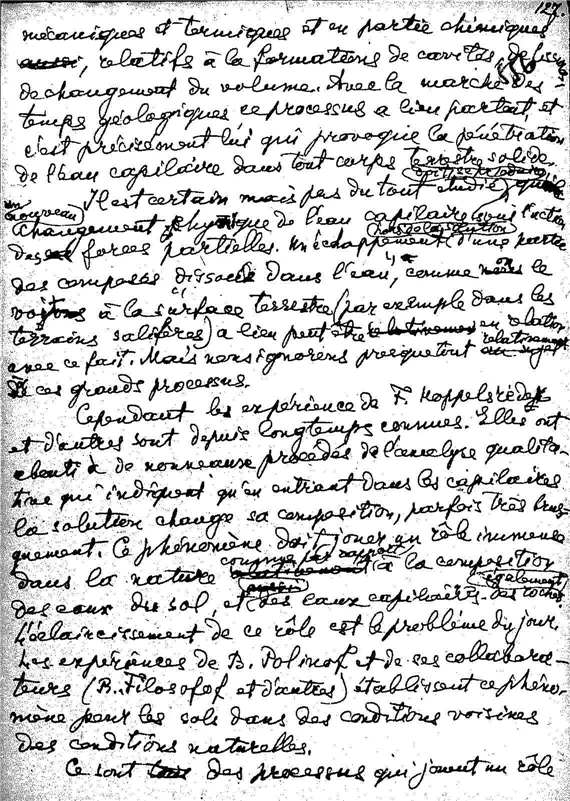 127.
mécaniques et termiques et en partie chimiques
aussi, relatifs à la formations de cavités, de fissures
de changement du volume. Avec la marche des
temps géologiques ce processus a lieu partout, et
c'est précisément lui qui provoque la pénétration
de l'eau capilaire dans tout corps terrestre solide.
Il est certain mais pas du tout étudié, qu'
un nouveau changement physique de l'eau capilaire sous l'action
des forces partielles. Un échappement d'une partie
des composés dissociés dans l'eau, comme on le
voit à la surface terrestre (par exemple dans les
terrains salifères) a lieu peut être en relation
avec ce fait. Mais nous ignorons presque tout relativement
à ces grands processus.
Cependant les expérience de F. Hoppelsreder
et d'autres sont depuis longtemps connues. Elles ont
abouti à de nouveaux procédés de l'analyse qualita-
tive qui indiquent qu'en entrant dans les capilaires
la solution change sa composition, parfois très brus-
quement. Ce phénomène doit jouer un rôle immense
dans la nature par rapport à la composition
des eaux du sol, et des eaux capilaires des roches également
L'éclaircissement de ce rôle est le problème du jour.
Les expériences de B. Polinof et de ses collabora-
teurs (B. Filosofof et d'autres) établissent ce phéno-
mène pour les sols dans des conditions voisines
des conditions naturelles.
Ce sont des processus qui jouent un rôle